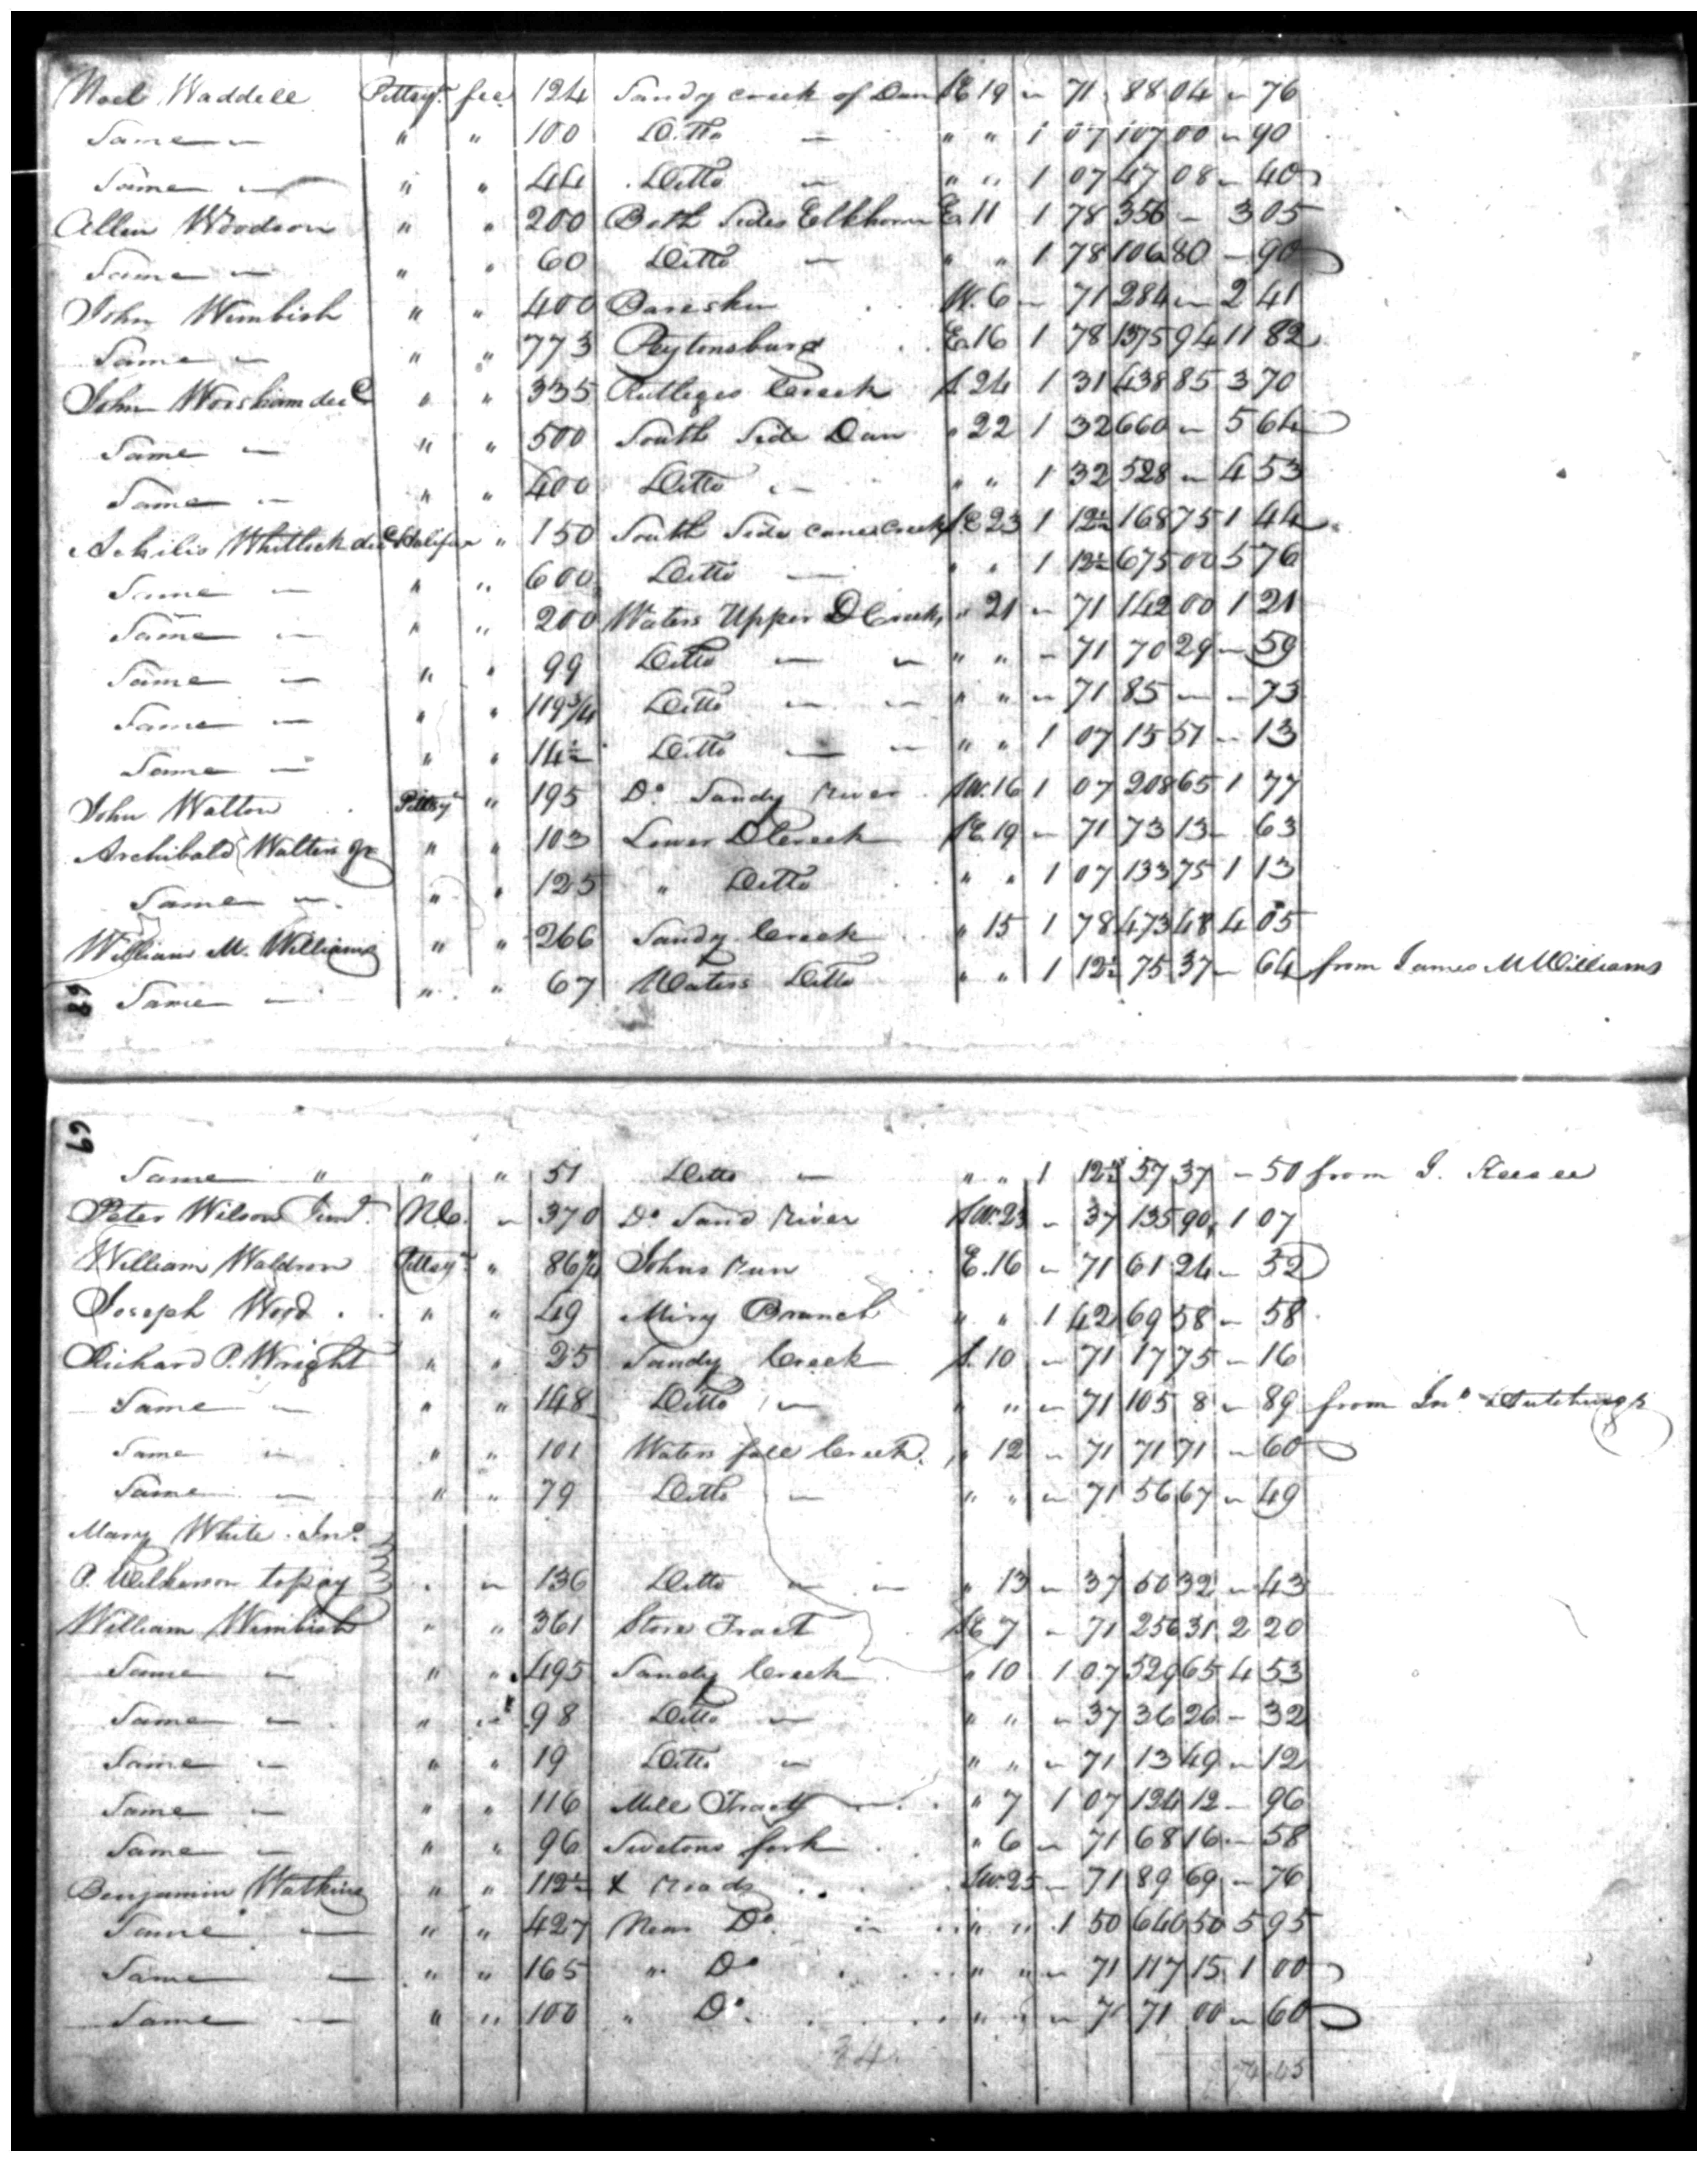 Noel Waddell Pittsyᵃ fee 124 Sandy creek of Dan SE 19 " 71 88 04 " 76
Same " " " 100 Ditto — " " 1 07 107 00 " 90
Same " " " 44 Ditto " " " 1 07 47 08 " 40
Allen Woodson " " 200 Both Sides Elkhorn E 11 1 78 356 — 3 05
Same " " " 60 Ditto — " " 1 78 106 80 — 90
John Wimbish " " 400 W. 6 — 71 284 — 2 41
Same " " " 773 Peytonsburg E 16 1 78 1375 94 11 82
John Worsham decᵈ " " 335 Rutleges Creek S 24 1 31 438 85 3 70
Same " " " 500 South Side Dan " 22 1 32 660 " 5 64
Same " " " 400 Ditto " " " 1 32 528 " 4 53
Achilis Whitlock decᵈ Halifax " 150 South Side canes Creek SE 23 1 12½ 168 75 1 44
Same — " " 600 Ditto — " " 1 12½ 675 00 5 76
Same " " " 200 Waters Upper D Creek " 21 " 71 142 00 1 21
Same — " " 99 Ditto — " " " — 71 70 29 — 59
Same — " " 119¾ Ditto — " " " " 71 85 — — 73
Same — " " 14½ Ditto — " " " 1 07 15 51 — 13
John Walton Pittsyᵃ " 195 Dº Sandy River SW. 16 1 07 208 65 1 77
Archibald Walters Jr " " 103 Lower D Creek SE 19 — 71 73 13 — 63
Same " " " 125 " Ditto " " 1 07 133 75 1 13
William M. Williams " " 266 Sandy Creek " 15 1 78 473 48 4 05
Same — " " 67 Waters Ditto " " 1 12½ 75 37 — 64 from James M Williams
68
69
Same " " " 51 Ditto — " " 1 12½ 57 37 — 50 from J.
Peter Wilson Junʳ. N C. " 370 Dº Sand River SW. 23 " 37 135 90 1 07
William Waldron Pittsyᵃ " 86¼ Johns Run E. 16 " 71 61 24 — 52
Joseph Wood " " 49 Miry Branch " " 1 42 69 58 " 58
Richard P. Wright " " 25 Sandy Creek S. 10 " 71 17 75 — 16
Same " " " 148 Ditto " " " " 71 105 8 " 89 from Jnº Hutchings
Same " " " 101 Waters fall Creek " 12 " 71 71 71 " 60
Same — " " 79 Ditto — " " " 71 56 67 " 49
Mary White Jnº
P. Wilkerson to pay " " 136 Ditto " " " 13 " 37 50 32 " 43
William Wimbish " " 361 Store Tract SE 7 " 71 256 31 2 20
Same " " " 495 Sandy Creek " 10 1 07 529 65 4 53
Same " " " 98 Ditto — " " " 37 36 26 — 32
Same " " " 19 Ditto " " " " 71 13 49 " 12
Same " " " 116 Mill Tract " 7 1 07 124 12 — 96
Same — " " 96 fork " 6 " 71 68 16 — 58
Benjamin Watkins " " 112½ X Roads SW. 25 — 71 89 69 — 76
Same — " " 427 Near Dº " " 1 50 640 50 5 95
Same — " " 165 " Dº " " " 71 117 15 1 00
Same — " " 100 " Dº " " " 71 71 00 " 60
34